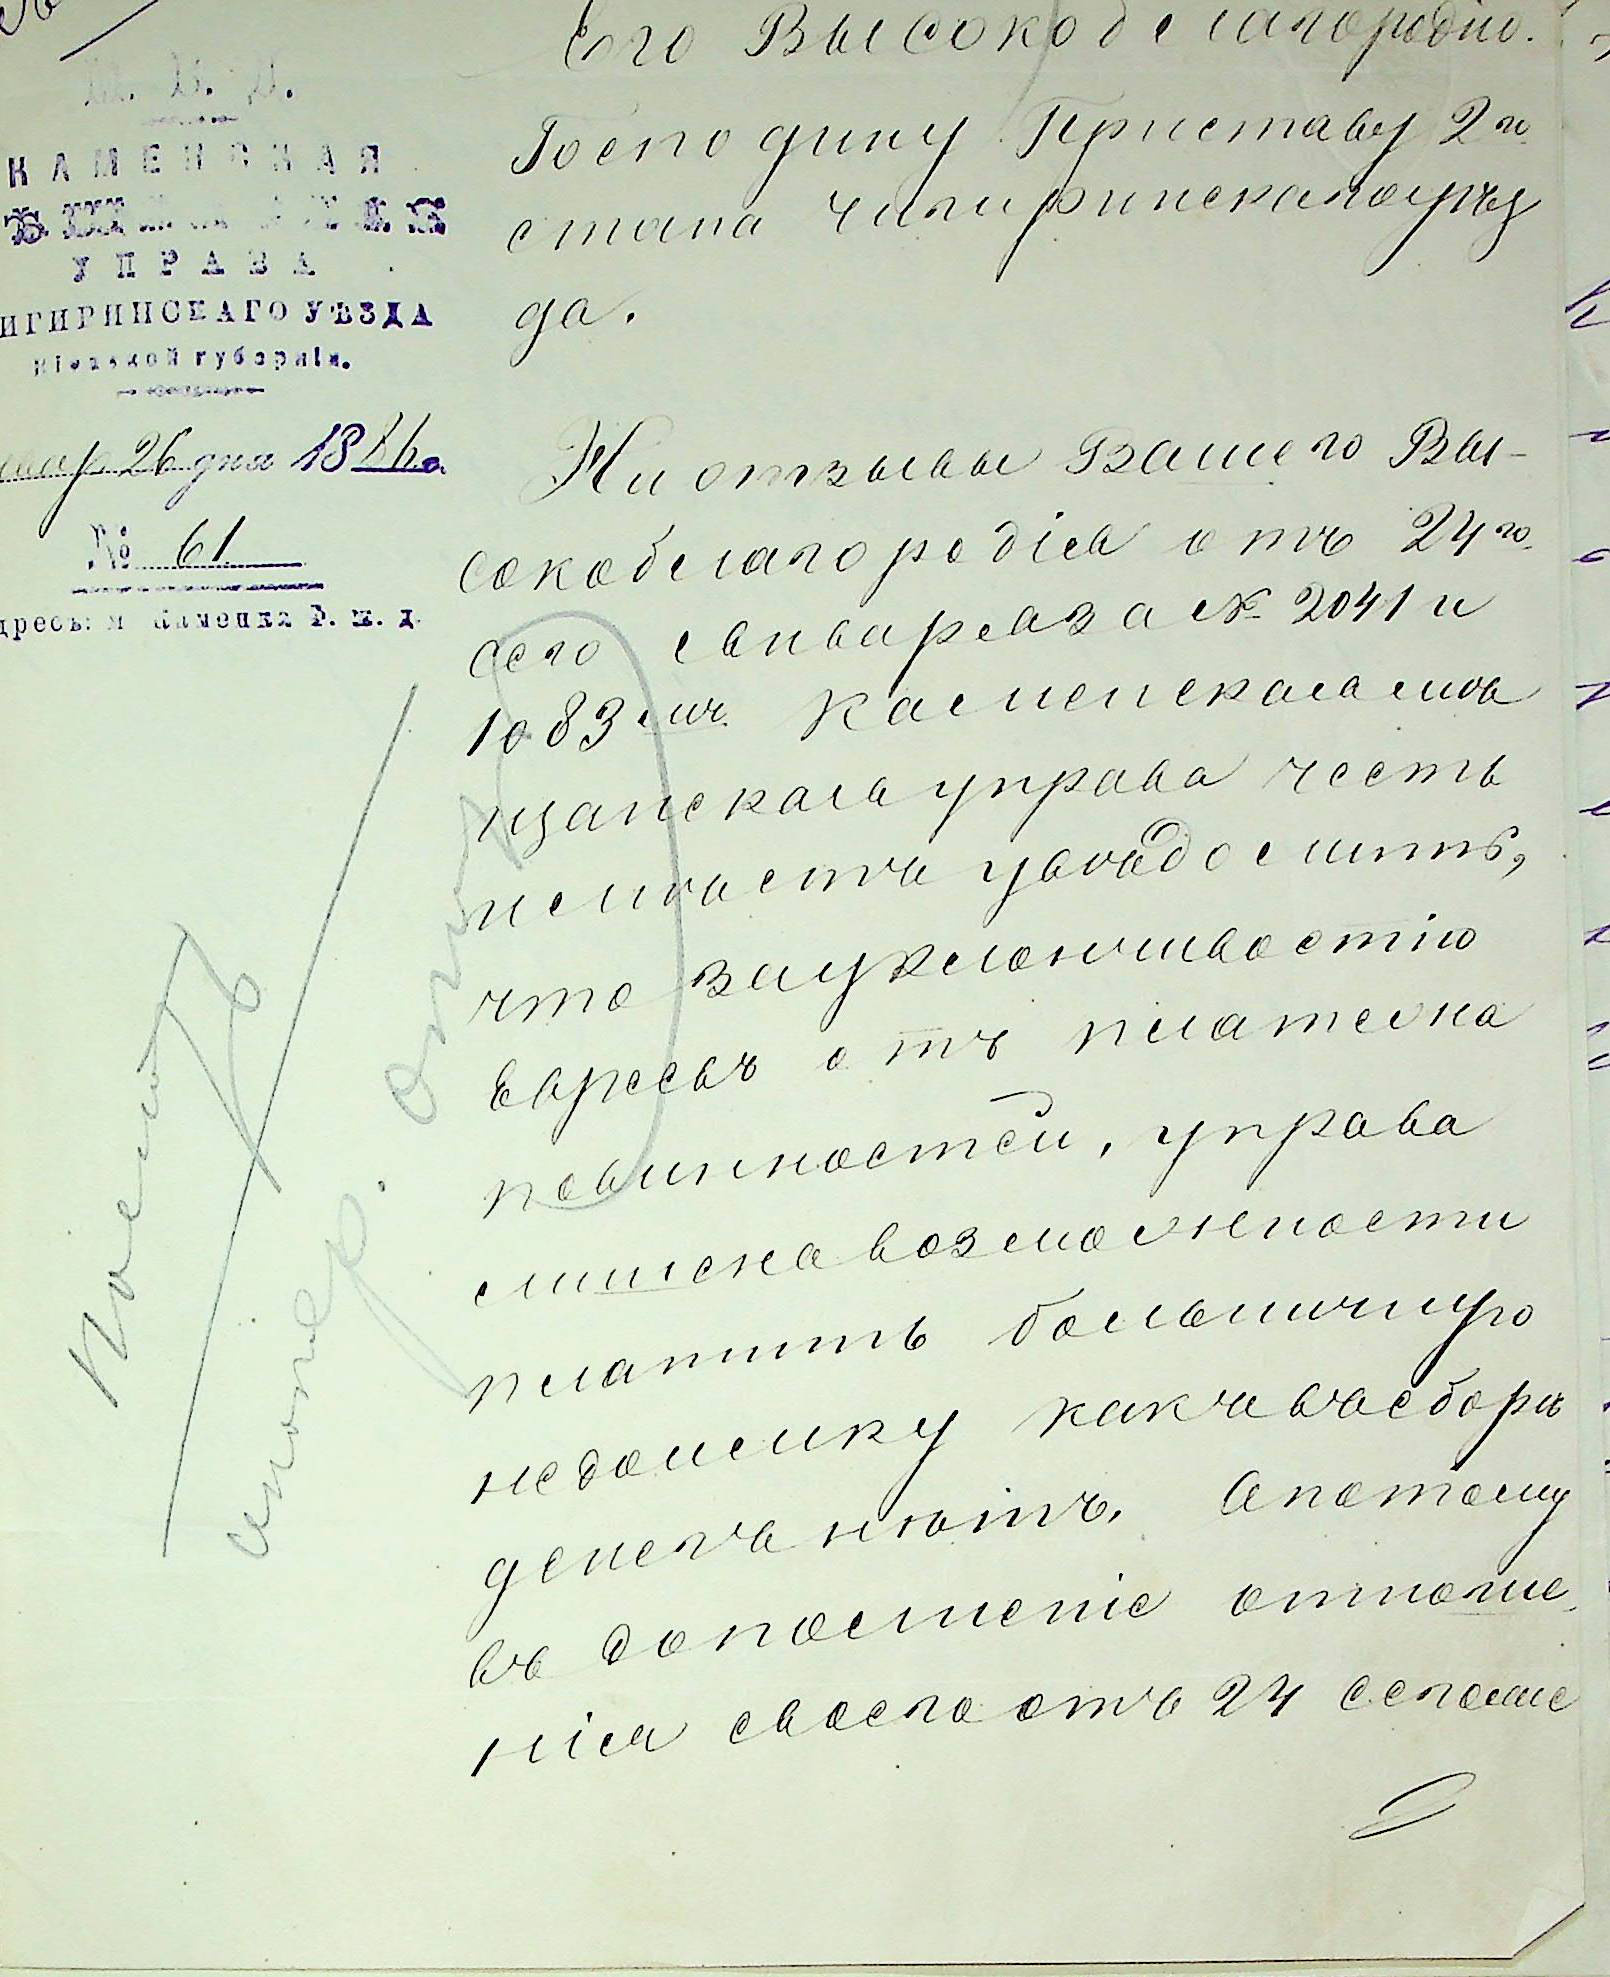 М. В. Д.
КАМЕНСКАЯ
УПРАВА
ИГИРИНСКАГО УѢЗДА
Кіевской губерніи.
26 дня 1886 г.
№ 61
дресъ: м Каменка Ф. ж. д.
Его Высокоблагородію.
Господину Приставу 2 го
стана Чигиринскаго уѣз
да.
На отзывы Вашего Вы-
сокоблагородія отъ 24 го
сего января за № 2041 и
1083 мъ Каменская мѣ
щанская управа честь
имѣетъ увѣдомить,
что за уклончивостію
евреевъ отъ платежа
повинностей, управа
лишена возможности
платить больничную
недоимку какъ въ сборѣ
денегъ нѣтъ. А потому
въ дополненіе отноше
нія своего отъ 24 сего же